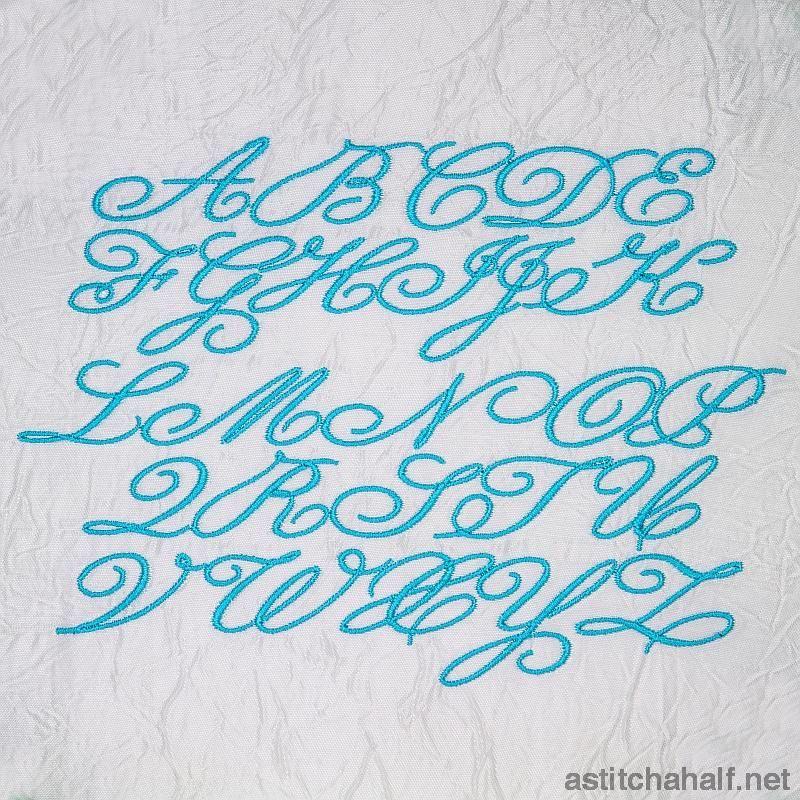 ABCDE
FGHIJK
LMNOP
QRSTU
VWXYZ
astitchahalf.net